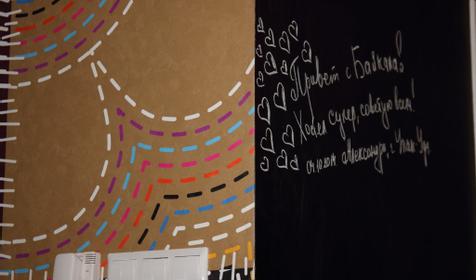 Привет с Байкала!
Хостел супер, советую всем!
Александра, г. Улан-Удэ